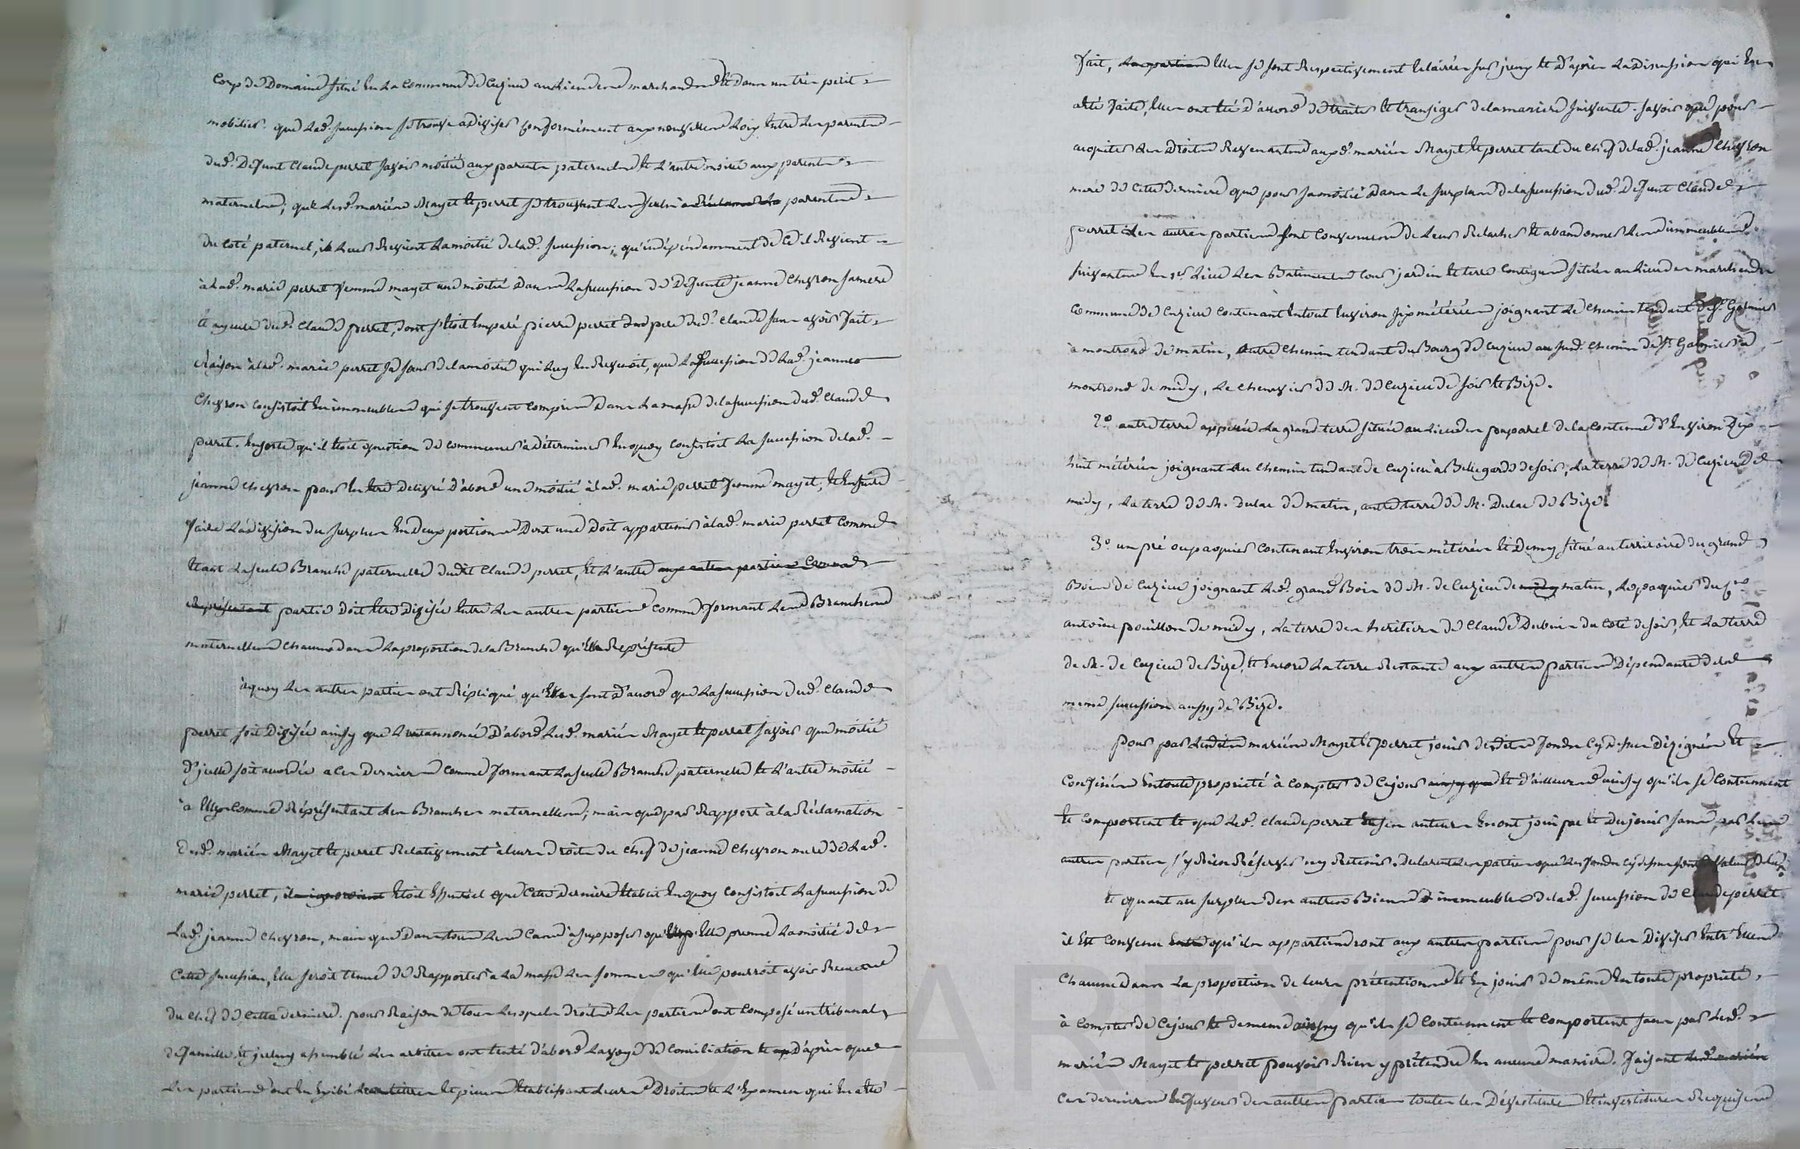 Corp de Domaine situé en la Commune de Cuzieu au lieu des marchands et dans un très petit
mobilier. que lad. succession se trouve a diviser conformément aux nouvelles Loix entre les parents
dud. Defunt Claude perret savoir moitié aux parents paternels et l'autre moitié aux parents
maternels; que lesd. mariés Mayet et perret se trouvent les seuls parents
du coté paternel, il leur Revient la moitié de lad. succession; qu'indépendamment de ce il Revient
à lad. marie perret femme mayet une moitié Dans la succession de Defunte jeanne Chevron sa mere
et ayeule dud. Claude perret, dont s'étoit emparé pierre perret pere dud. Claude sans avoir fait
Raison à lad. marie perret sa soeur de la moitié qui luy en Revenoit, que la succession de lad. jeanne
Chevron consistoit en immeubles qui se trouvent compris Dans la masse de la succession dud. Claude
perret. ensorte qu'il étoit question de commencer à déterminer en quoy consistoit la succession de lad.
jeanne Chevron pour en être delivré d'abord une moitié à lad. marie perret femme mayet, et ensuite
faire la division du surplus en deux portions Dont une Doit appartenir à lad. marie perret comme
étant la seule Branche paternelle dudit Claude perret, et l'autre aux autres parties comme
représentant partie doit être Divisée entre les autres parties comme formant les Branches
maternelles chacune dans la proportion de la Branche qu'elle Représente
à quoy les autres parties ont Répliqué qu'elles sont d'accord que la succession dud. Claude
perret soit Divisée ainsy que l'ont annoncé D'abord lesd. mariés Mayet et perret savoir que moitié
d'icelle soit accordée a ces derniers comme formant la seule Branche paternelle et l'autre moitié
à elles comme Représentant les Branches maternelles; mais que par Rapport à la Réclamation
desd. mariés Mayet et perret Relativement à leurs droits du chef de jeanne Chevron mere de lad.
marie perret, il étoit Essentiel que cette derniere établit en quoy consistoit la succession de
lad. jeanne Chevron, mais que Dans tous les cas à supposer qu'elle prenne la moitié de
cette succession, elle seroit tenue de Rapporter à la masse les sommes qu'elle pourroit avoir Recues
du chef de cette derniere. pour Raison de tous lesquels droits les parties ont composé un tribunal
de famille et iceluy assemblé les arbitres ont tenté d'abord la voye de conciliation et d'après que
les parties ont eu exibé les titres et pieces établissant leurs Droits et l'Examen qui en a été
fait, les parties elles se sont Respectivement éclairées sur iceux et d'après la Discussion qui en
a été faite, elles ont été d'accord de traiter et transiger de la maniere suivante. savoir que pour
acquiter les Droits Revenants auxd. mariés Mayet et perret tant du chef de lad. jeanne Chevron
mere de cette derniere que pour sa moitié Dans le surplus de la succession dud. Defunt Claude
perret les autres parties sont convenues de leur Relacher et abandonner les immeubles
suivants en 1er lieu les Batiments Cour jardin et terre contigus situés au lieu des marchands
Commune de Cuzieu contenant en tout environ six métérées joignant le chemin tendant de St. Galmier
à montrond de matin, autre chemin tendant du Bourg de Cuzieu au susd. chemin de St. Galmier à
montrond de midy, le chenevier de M. de Cuzieu de soir et Bize.
2.° autre terre appellée la grand terre située au lieu de la contenue d'environ Dix
huit métérées joignant un chemin tendant de Cuzieu à Bellegarde de soir, la terre de M. de Cuzieu de
midy, la terre de M. Dulac de matin, autre terre de M. Dulac de Bize.
3.° un pré ou paquier contenant environ trois métérées et Demy situé au territoire du grand
Bois de Cuzieu joignant led. grand Bois de M. de Cuzieu de matin, le paquier du Cn
antoine pouillon de midy, la terre des heritiers de Claude Dubuis du coté de soir, et la terre
de M. de Cuzieu de Bize, et encore la terre Restante aux autres parties Dépendante de la
meme succession aussy de Bize.
pour par lesdits mariés Mayet et perret jouir desdits fonds cy dessus désignés et
confinés en toute propriété à compter de ce jour et d'ailleurs ainsy qu'ils se contiennent
et comportent et que led. Claude perret et ses auteurs en ont joui pu et du jouir sans par les
autres parties s'y Rien Réserver ny Retenir. declarent les parties que les fonds cy dessus sont
et quant au surplus des autres Biens immeubles de lad. succession de Claude perret
il est convenu qu'ils appartiendront aux autres parties pour se les Diviser entr'elles
chacune dans la proportion de leurs prétentions et en jouir de même en toute propriété,
à compter de ce jour et de meme ainsy qu'ils se contiennent et comportent sans par lesd.
mariés Mayet et perret pouvoir Rien y prétendre en aucune maniere. faisant lesd. mariés
ces derniers en faveur des autres parties toutes les Dévestitures et investitures Requises